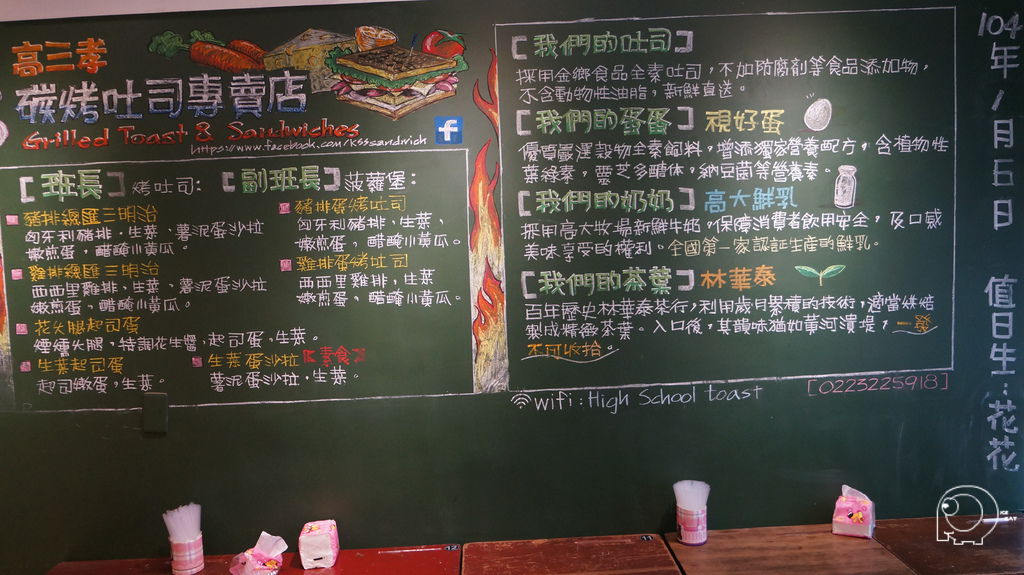 高三孝
碳烤吐司專賣店
Grilled Toast & Sandwiches
https://www.facebook.com/KSSsandwich
f
[班長] 烤吐司: [副班長] 菠蘿堡:
豬排總匯三明治
匈牙利豬排,生菜、薯泥蛋沙拉
嫩煎蛋,醋醃小黃瓜。
雞排總匯三明治
西西里雞排,生菜、薯泥蛋沙拉
嫩煎蛋,醋醃小黃瓜。
花火腿起司蛋
煙燻火腿,特調花生醬,起司蛋,生菜。
生菜起司蛋
起司嫩蛋,生菜。
生菜蛋沙拉【素食】
薯泥蛋沙拉,生菜。
豬排蛋烤吐司
匈牙利豬排,生菜、
嫩煎蛋,醋醃小黃瓜。
雞排蛋烤吐司
西西里雞排,生菜
嫩煎蛋,醋醃小黃瓜。
[我們的吐司]
採用金鄉食品全素吐司,不加防腐劑等食品添加物,
不含動物性油脂,新鮮直送。
[我們的蛋蛋] 視好蛋
優質嚴選穀物全素飼料,增添獨家營養配方,含植物性
葉綠素,靈芝多醣体,納豆菌等營養素。
[我們的奶奶] 高大鮮乳
採用高大牧場新鮮牛奶,保障消費者飲用安全,及口感
美味享受的權利。全國第一家認証生産的鮮乳。
[我們的茶葉] 林華泰
百年歷史林華泰茶行,利用歲月累積的技術,適當烘焙
製成精緻茶葉。入口後,其韻味猶如黃河潰堤,一發
不可收拾。
wifi:High School toast
[0223225918]
104年1月5日 值日生:花花
12
11